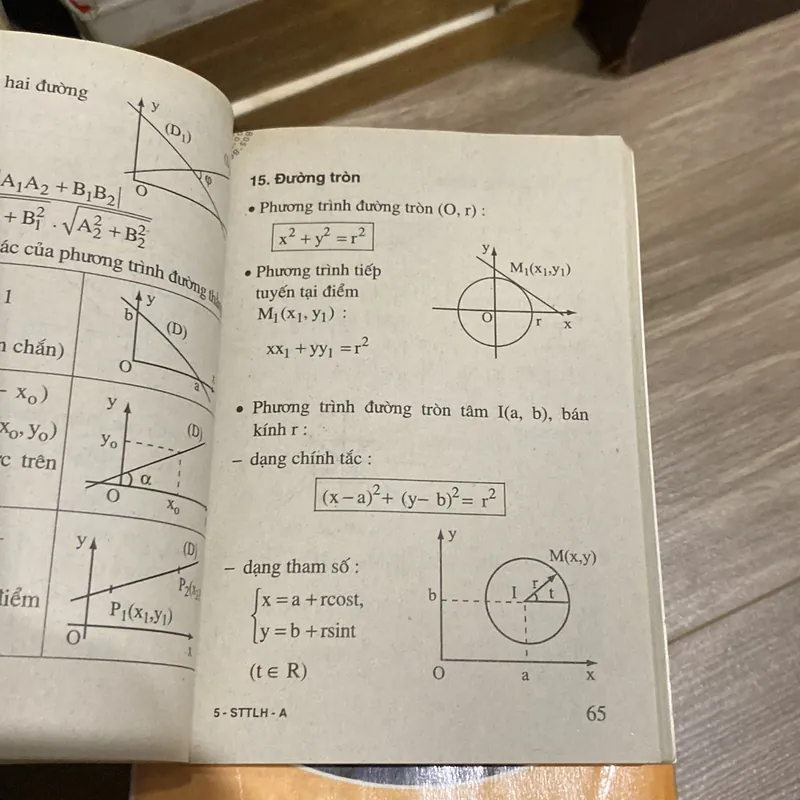 hai đường
y
(D₁)
φ
O
A₁A₂ + B₁B₂|
+ B₁² . √A₂² + B₂²
ác của phương trình đường
1
n chắn)
y
b
(D)
O
a
– x₀)
x₀, y₀)
trên
y
y₀
(D)
α
O
x₀
điểm
y
(D)
P₁(x₁,y₁)
O
x
15. Đường tròn
• Phương trình đường tròn (O, r) :
x² + y² = r²
• Phương trình tiếp
tuyến tại điểm
M₁(x₁, y₁) :
xx₁ + yy₁ = r²
y
M₁(x₁,y₁)
O
r
x
• Phương trình đường tròn tâm I(a, b), bán
kính r :
– dạng chính tắc :
(x – a)² + (y – b)² = r²
– dạng tham số :
{x = a + rcost,
y = b + rsint
(t ∈ R)
y
M(x,y)
b
I
r
t
O
a
x
5 - STTLH - A
65